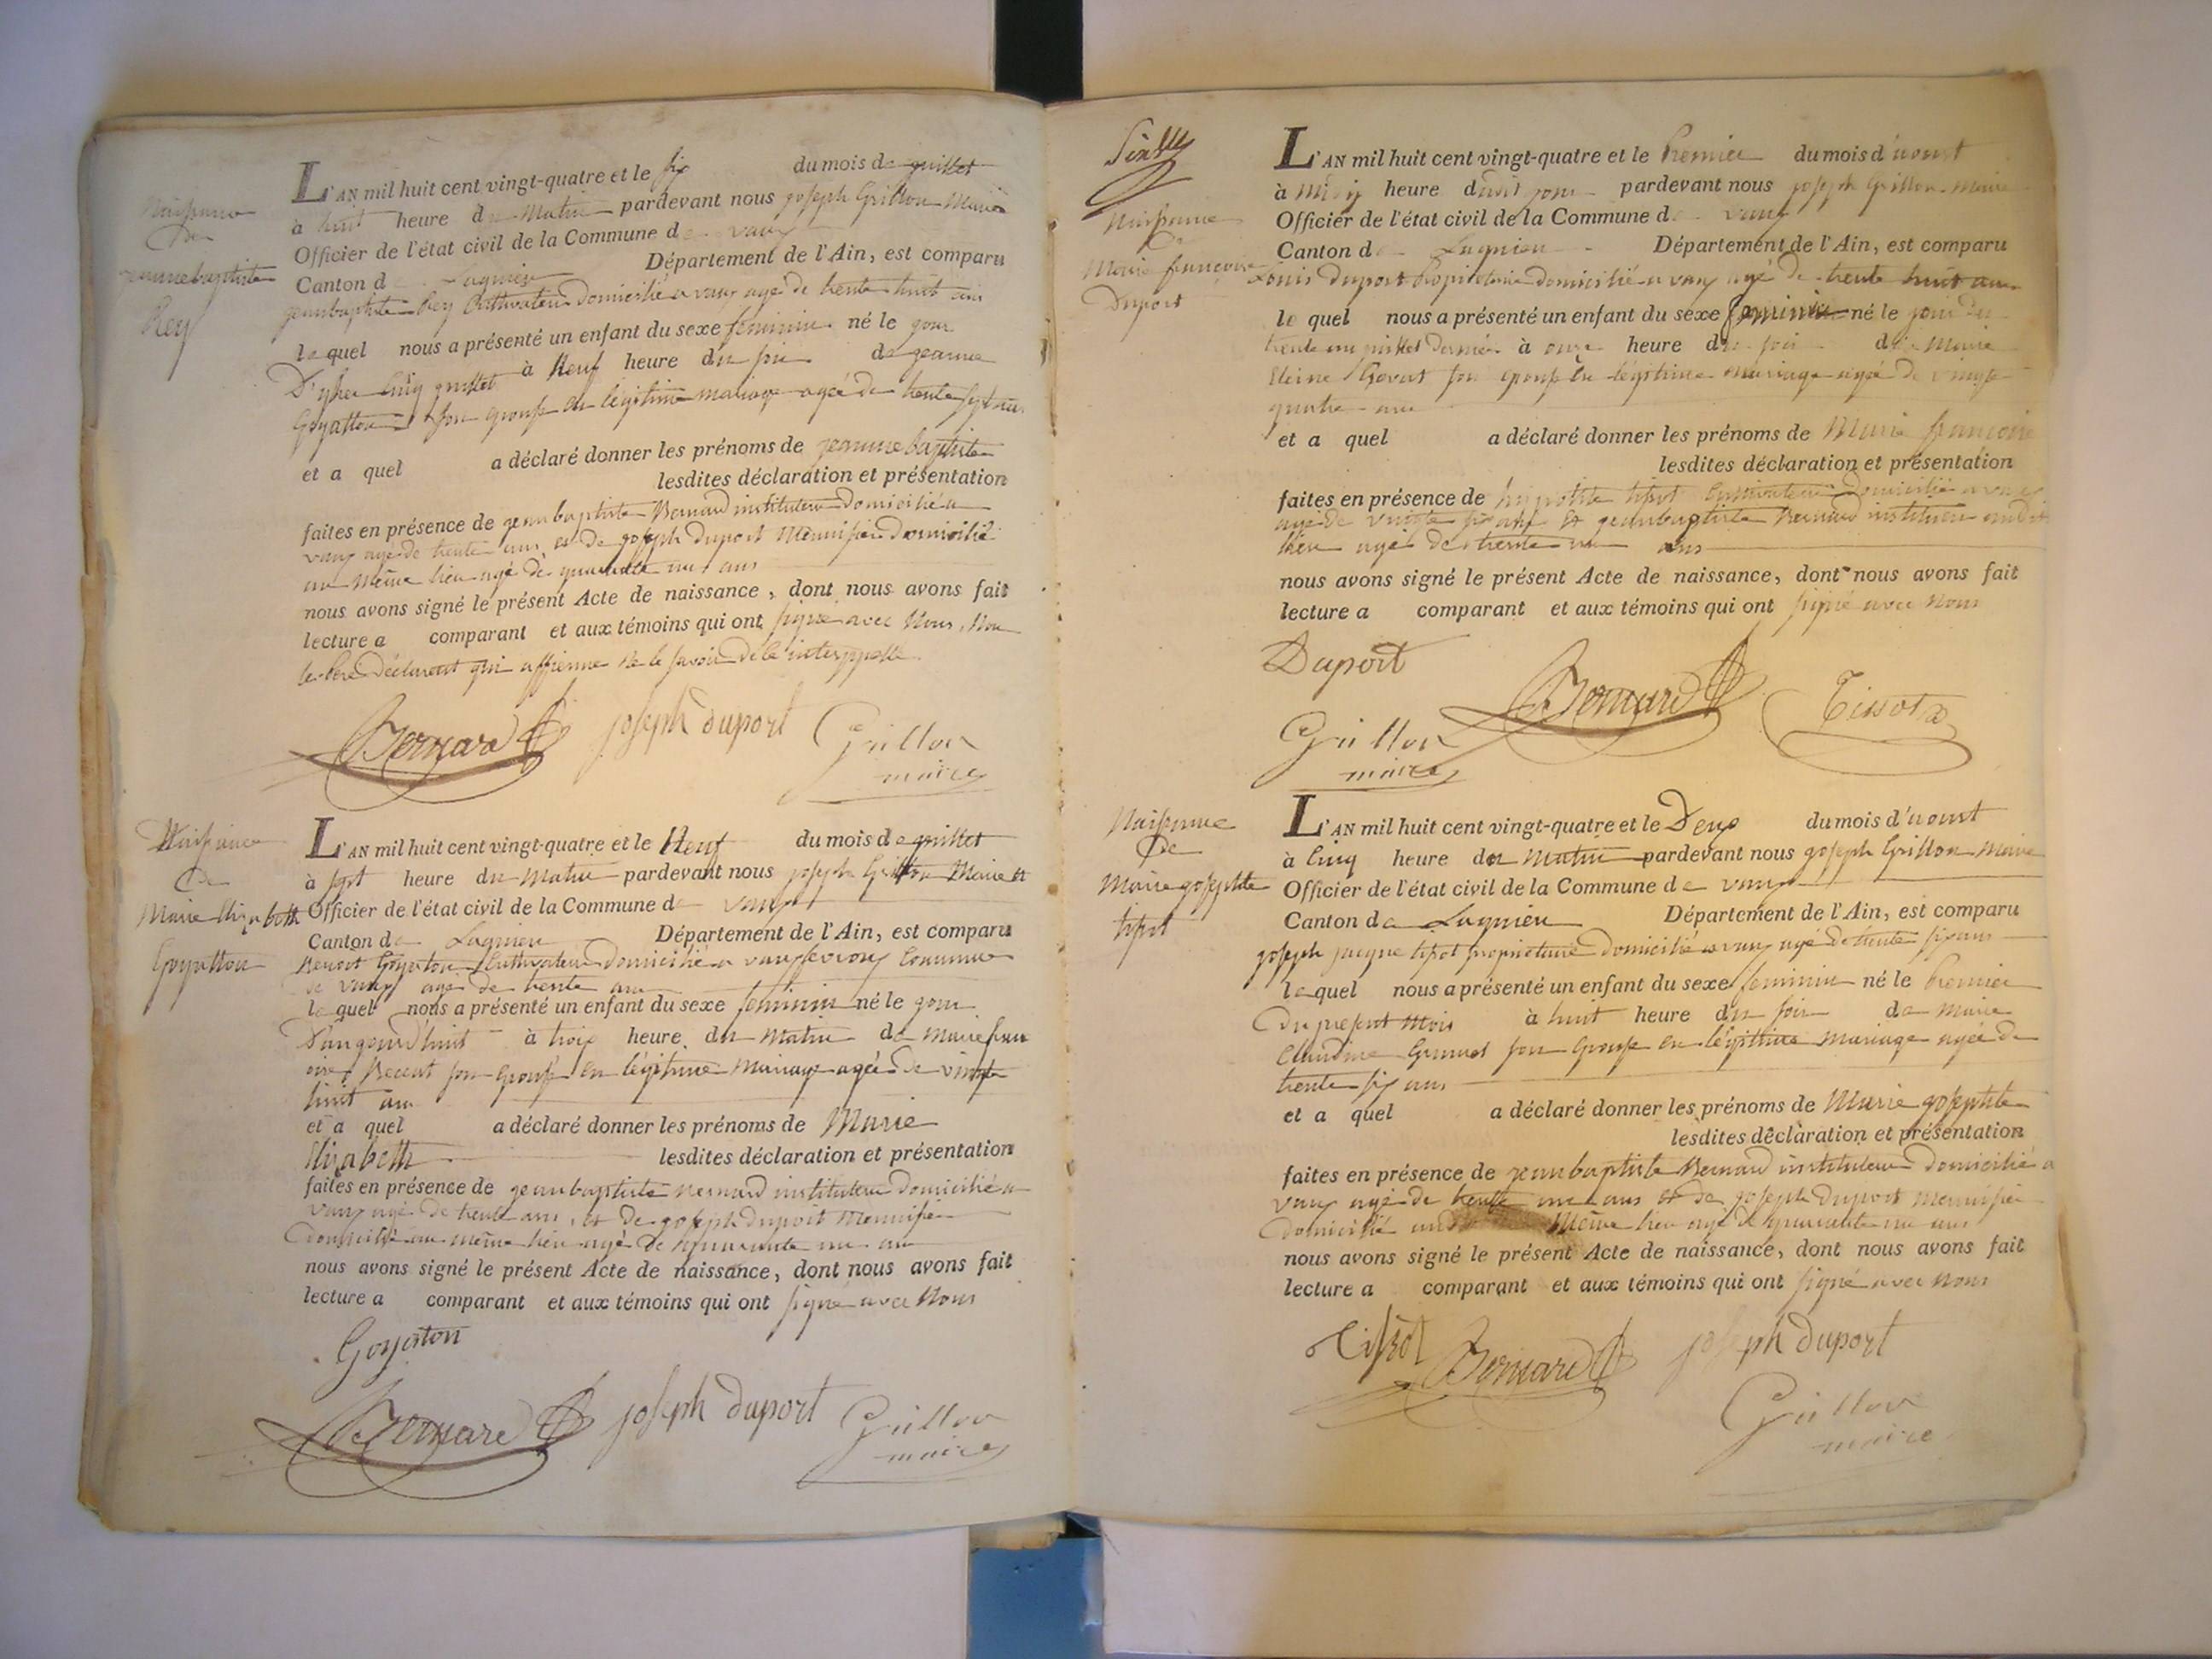 Naissance
de
jeannebaptiste
Rey
L'AN mil huit cent vingt-quatre et le six du mois de juillet
à huit heure du Matin pardevant nous joseph Grillon Maire
Officier de l'état civil de la Commune de vaux
Canton de Lagnieu Département de l'Ain, est comparu
jeanbaptiste Rey Cultivateur Domicilié a vaux agé de trente huit ans
lequel nous a présenté un enfant du sexe feminin né le jour
D'yher cinq juillet à Neuf heure du soir de jeanne
Goyatton son epouse en légitime mariage agée de trente sept ans
et a quel a déclaré donner les prénoms de jeannebaptiste
lesdites déclaration et présentation
faites en présence de jeanbaptiste Bernard instituteur Domicilié a
vaux agé de trente ans et de joseph Duport Menuisier Domicilié
au Même lieu agé de quarante un ans
nous avons signé le présent Acte de naissance, dont nous avons fait
lecture a comparant et aux témoins qui ont signé avec Nous, Non
le Père Déclarant qui affirme ne le savoir De ce interppellé
Bernard joseph duport Grillon
maire
Naissance
De
Marie Elizabeth
Goyatton
L'AN mil huit cent vingt-quatre et le Neuf du mois de juillet
à sept heure du Matin pardevant nous joseph Grillon Maire et
Officier de l'état civil de la Commune de vaux
Canton de Lagnieu Département de l'Ain, est comparu
Benoit Goyaton Cultivateur Domicilié a vaux fevroux Commune
de vaux agé de trente ans
lequel nous a présenté un enfant du sexe feminin né le jour
D'aujourd'huit à trois heure du Matin de Marie fran
oise son Epouse en légitime Mariage agée De vingt
huit ans
et a quel a déclaré donner les prénoms de Marie
Elizabeth lesdites déclaration et présentation
faites en présence de jeanbaptiste Bernard instituteur Domicilié a
vaux agé De trente ans, et de joseph Duport Menuisier
Domicilié au même lieu agé De quarante un ans
nous avons signé le présent Acte de naissance, dont nous avons fait
lecture a comparant et aux témoins qui ont signé avec Nous
Goyaton
Bernard joseph duport Grillon
maire
Naissance
De
Marie françoise
Duport
L'AN mil huit cent vingt-quatre et le Premier du mois d'aoust
à Midy heure pardevant nous joseph Grillon Maire
Officier de l'état civil de la Commune de vaux
Canton de Lagnieu Département de l'Ain, est comparu
Louis Duport Propriétaire domicilié a vaux agé De trente huit ans
le quel nous a présenté un enfant du sexe feminin né le jour du
trente un juillet Dernier à onze heure du soir de Marie
son epouse en légitime mariage agée De vingt
quatre ans
et a quel a déclaré donner les prénoms de Marie françoise
lesdites déclaration et présentation
faites en présence de hipolite tissot Cultivateur Domicilié a vaux
agé De vingt six ans et jeanbaptiste Bernard instituteur audit
lieu agé De trente un ans
nous avons signé le présent Acte de naissance, dont nous avons fait
lecture a comparant et aux témoins qui ont signé avec Nous
Duport
Bernard Tissot
Grillon
maire
Naissance
De
Marie josephte
tissot
L'AN mil huit cent vingt-quatre et le Deux du mois d'aoust
à Cinq heure du Matin pardevant nous joseph Grillon Maire
Officier de l'état civil de la Commune de vaux
Canton de Lagnieu Département de l'Ain, est comparu
joseph jacque tissot propriétaire Domicilié a vaux agé De trente six ans
lequel nous a présenté un enfant du sexe feminin né le Premier
Du present Mois à huit heure du soir de Marie
Claudine son Epouse en légitime Mariage agée De
trente six ans
et a quel a déclaré donner les prénoms de Marie josephte
lesdites déclaration et présentation
faites en présence de jeanbaptiste Bernard instituteur Domicilié a
vaux agé de trente un ans et De joseph Duport Menuisier
Domicilié Même lieu agé De quarante un ans
nous avons signé le présent Acte de naissance, dont nous avons fait
lecture a comparant et aux témoins qui ont signé avec Nous
Tissot Bernard joseph duport
Grillon
maire